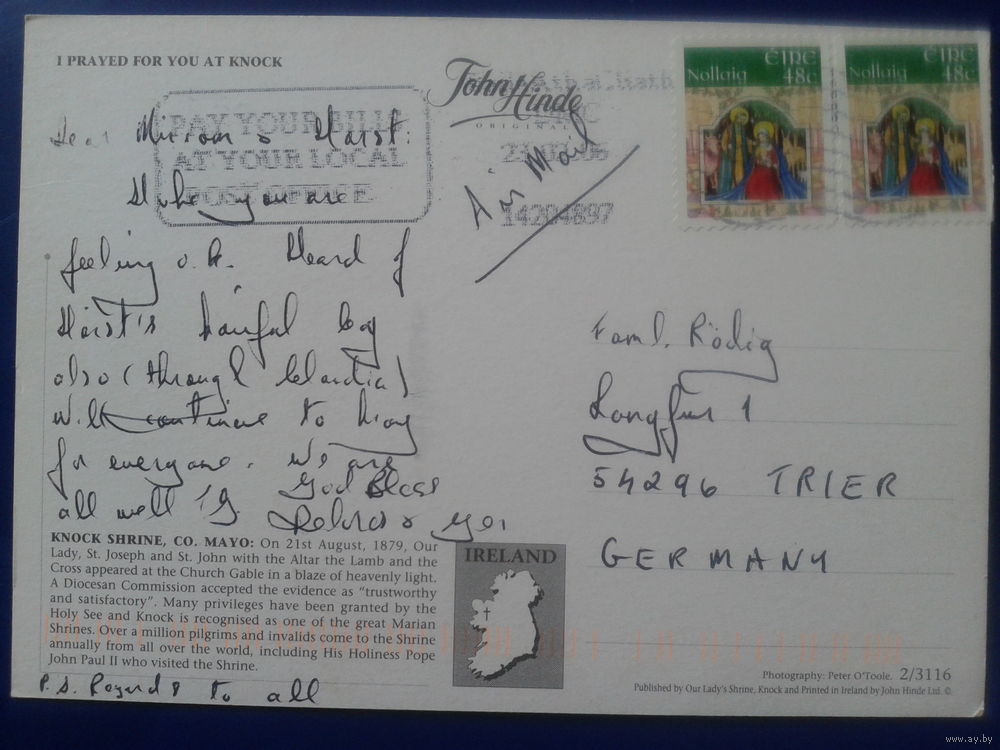 I PRAYED FOR YOU AT KNOCK
John Hinde
ORIGINAL
Nollaig
ÉIRE
48c
Nollaig
ÉIRE
48c
PAY YOUR BILLS
AT YOUR LOCAL
POST OFFICE
14204897
Air Mail
Dear
you are
feeling o.k. Heard of
leg
also (through Claudia)
will continue to pray
for everyone. We are
all well God Bless
P.S. Regards to all
Faml. Rödig
54296 TRIER
GERMANY
KNOCK SHRINE, CO. MAYO: On 21st August, 1879, Our
Lady, St. Joseph and St. John with the Altar the Lamb and the
Cross appeared at the Church Gable in a blaze of heavenly light.
A Diocesan Commission accepted the evidence as "trustworthy
and satisfactory". Many privileges have been granted by the
Holy See and Knock is recognised as one of the great Marian
Shrines. Over a million pilgrims and invalids come to the Shrine
annually from all over the world, including His Holiness Pope
John Paul II who visited the Shrine.
IRELAND
Photography: Peter O'Toole. 2/3116
Published by Our Lady's Shrine, Knock and Printed in Ireland by John Hinde Ltd. ©
www.ay.by